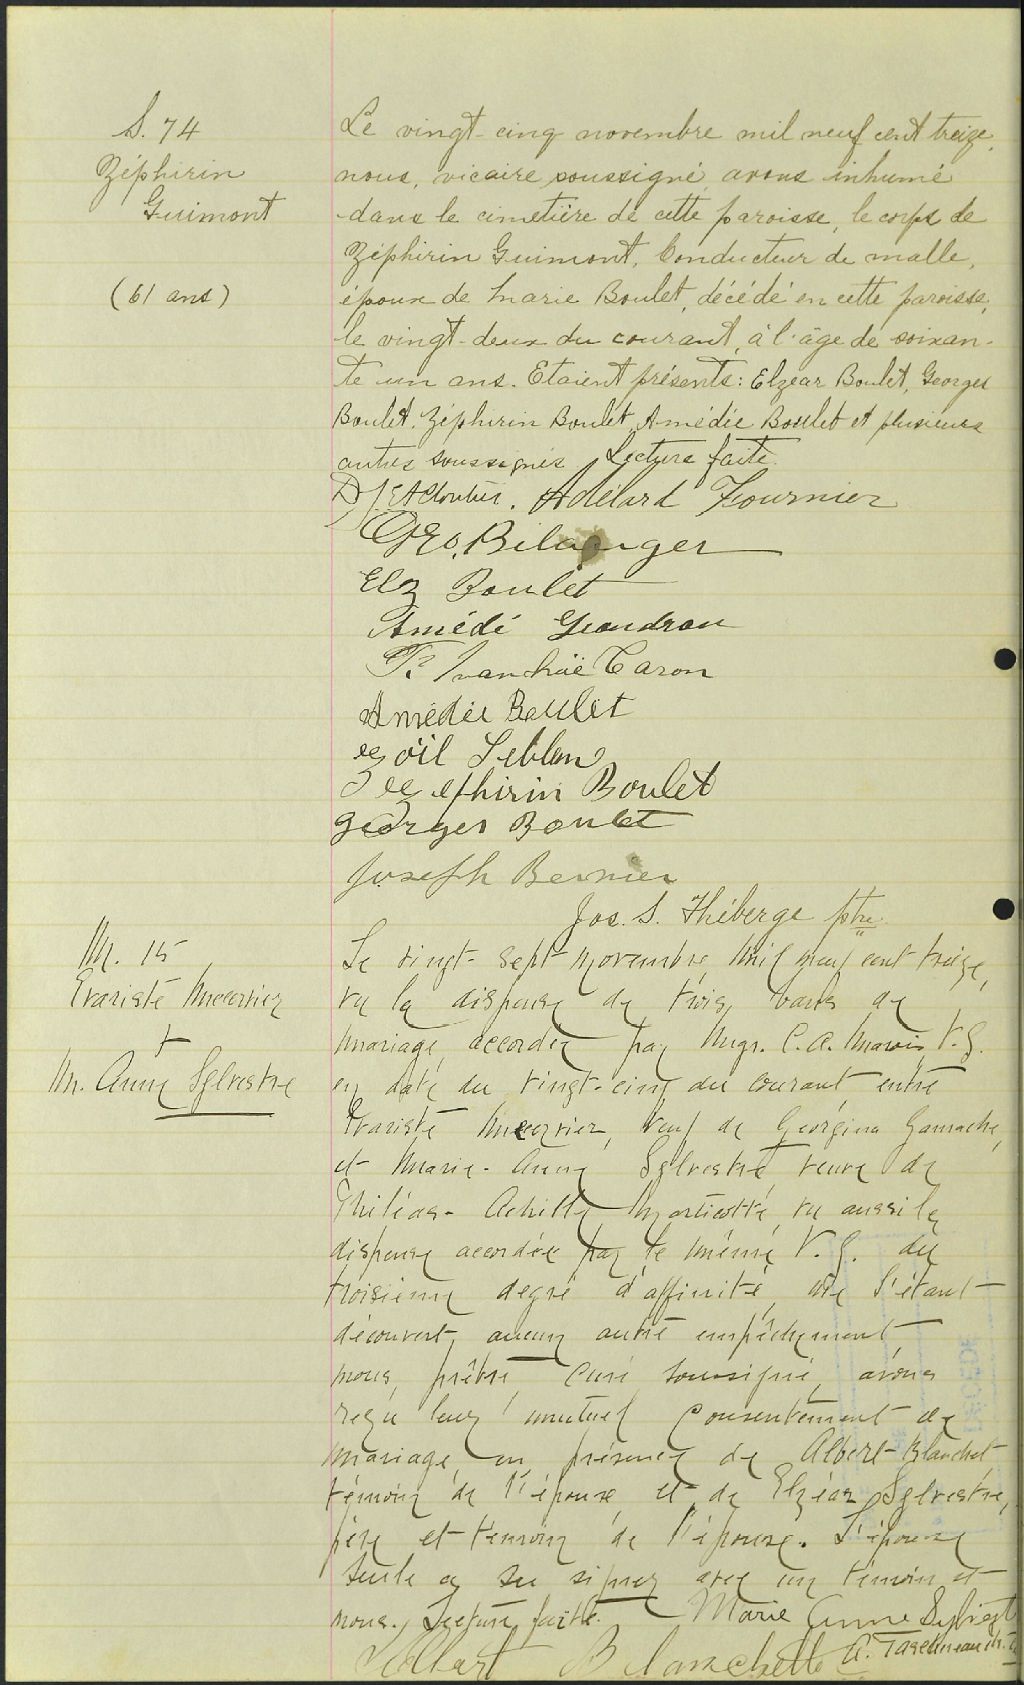 S. 74
Zéphirin
Guimont
(61 ans)
Le vingt-cinq novembre mil neuf cent treize,
nous, vicaire soussigné avons inhumé
dans le cimetière de cette paroisse, le corps de
Zéphirin Guimont, Conducteur de malle,
époux de Marie Boulet, décédé en cette paroisse,
le vingt-deux du courant, à l'âge de soixan-
te un ans. Etaient présents: Elzéar Boulet, Georges
Boulet, Zéphirin Boulet, Amédée Boulet et plusieurs
autres soussignés Lecture faite.
Cloutier. Adélard Fournier
Geo. Bélanger
Elz Boulet
Amédé Geandron
Caron
Amédée Boulet
Boulet
Georges Boulet
Joseph Bernier
Jos. S. Théberge ptre
M. 15
Evariste Mercier
+
M. Anne Sylvestre
Le vingt-sept novembre, mil neuf cent treize,
vu la dispense de trois bans de
mariage, accordée par Mgr. C. A. Marois, V. G.
en date du vingt-cinq du courant, entre
Evariste Mercier, veuf de Géorgina Gamache,
et Marie-Anne Sylvestre, veuve de
Philéas-Achille Marticotte, vu aussi la
dispense accordée par le même V. G. du
troisième degré d'affinité, ne s'étant
découvert aucun autre empêchement
nous, prêtre curé soussigné, avons
reçu leur mutuel consentement de
mariage en présence de Albert Blanchet
témoin de l'époux et de Elzéar Sylvestre,
père et témoin de l'épouse. L'épouse
seule a su signer avec un témoin et
nous. Lecture faite. Marie Anne Sylvest
Albert Blanchette A.